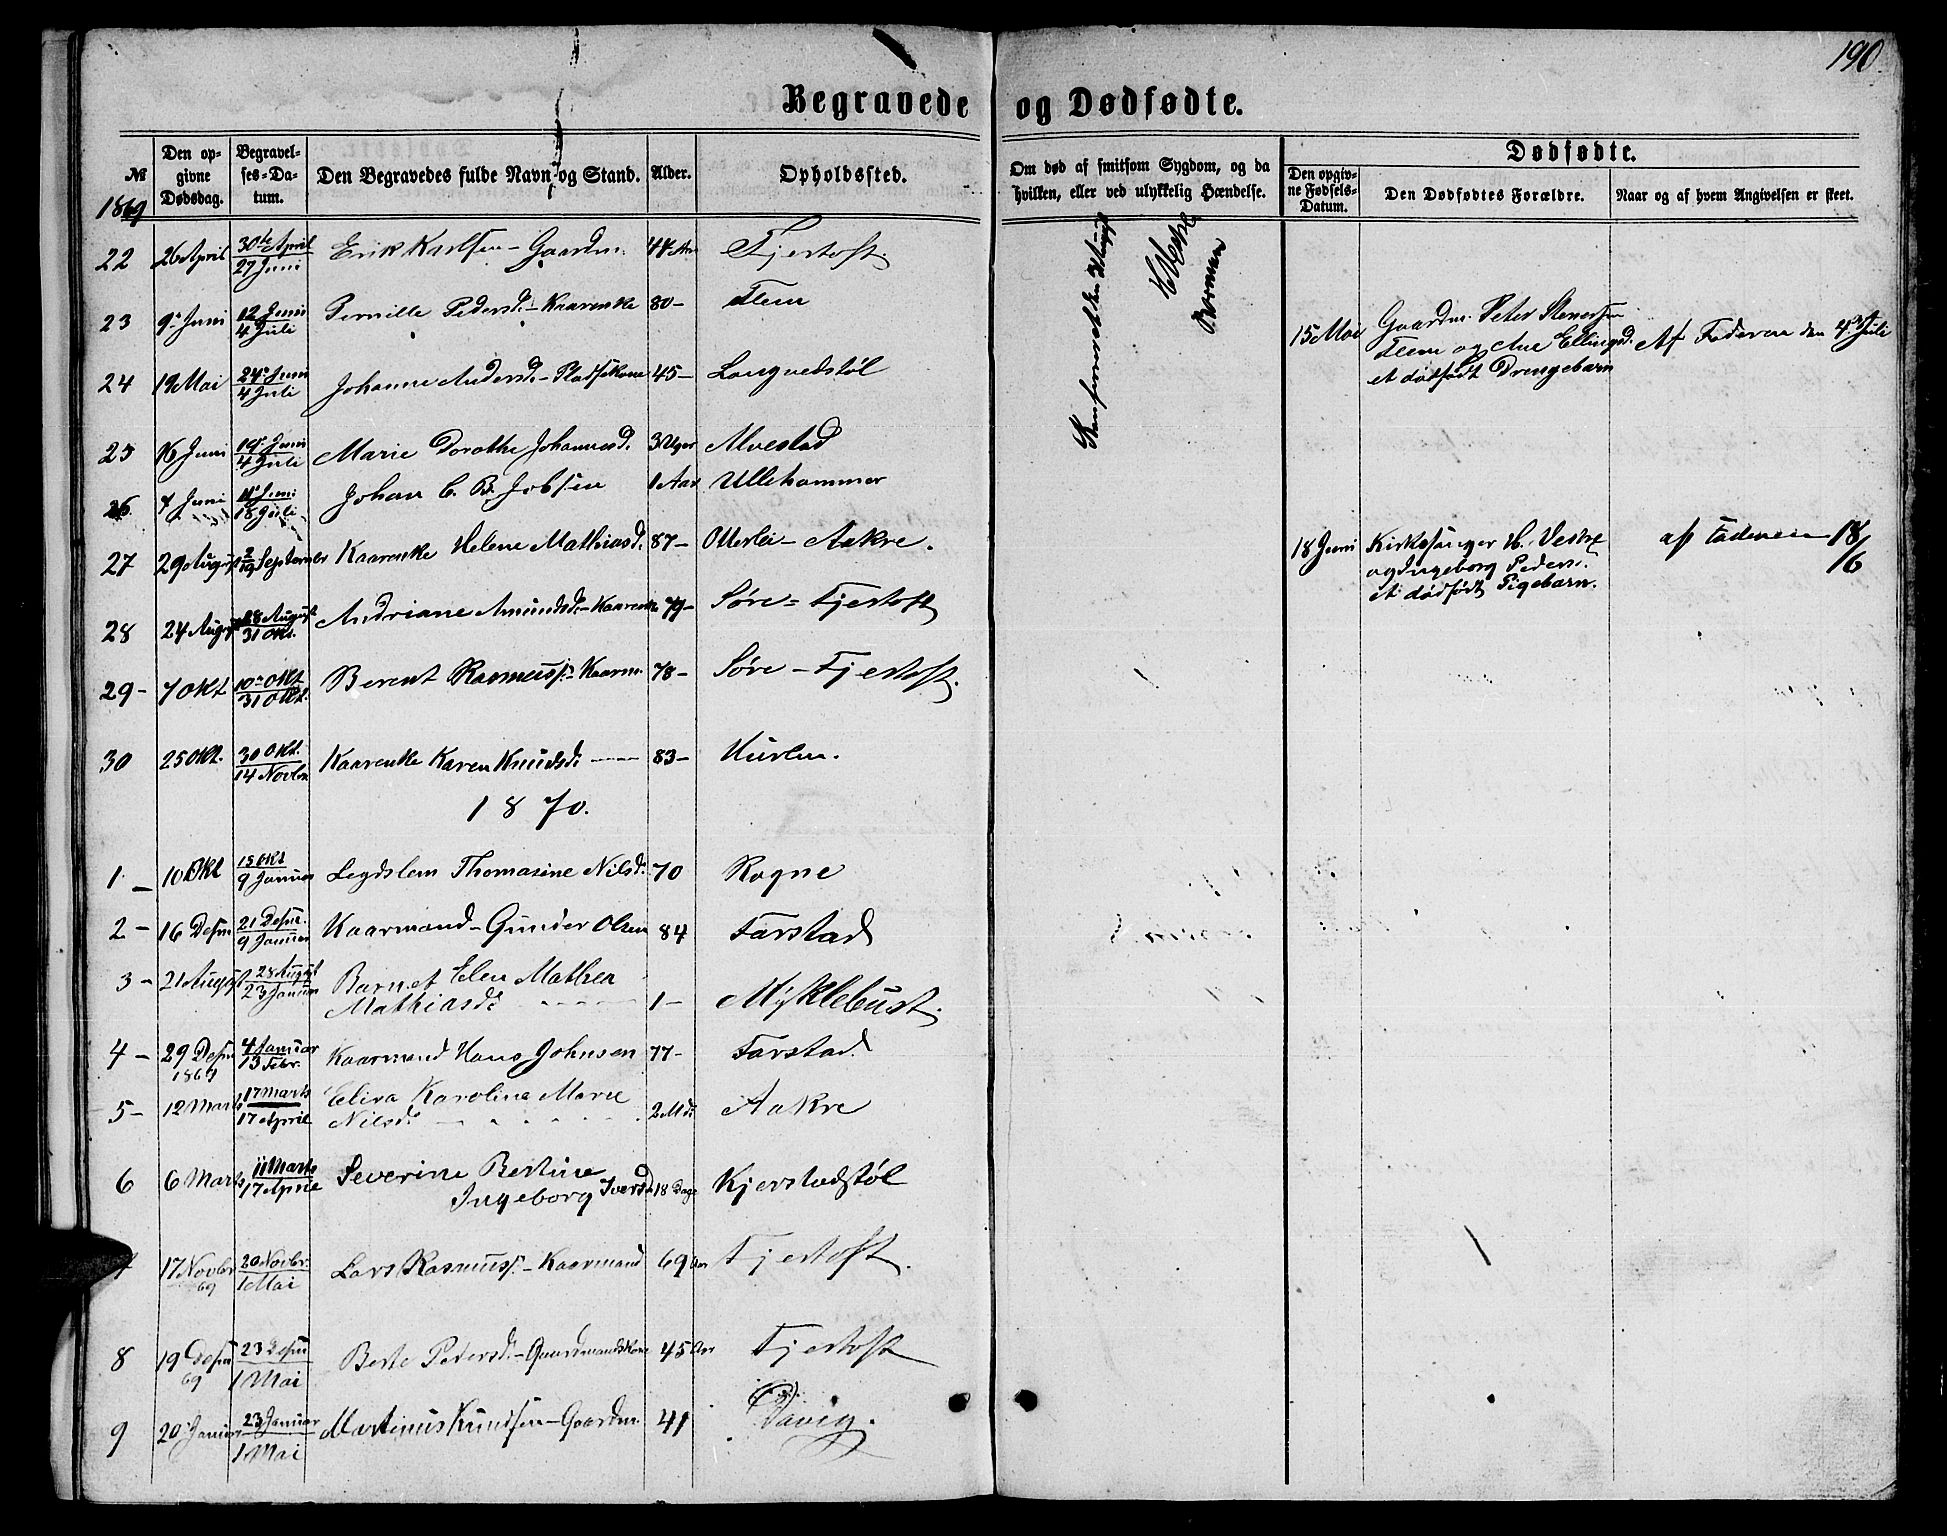 190
Begravede og Dødfødte.
№
Den opgivne Dødsdag.
Begravelses-Datum.
Den Begravedes fulde Navn og Stand.
Alder.
Opholdssted.
Om død af smitsom Sygdom, og da hvilken, eller ved ulykkelig Hændelse.
Dødfødte.
Den opgivne Fødsels-Datum.
Den Dødfødtes Forældre.
Naar og af hvem Angivelsen er skeet.
1869
22 26 April 30te April 27 Juni Erik Karlsen - Gaardm. 44 Aar Fjertoft.
23 9de Juni 12 Juni 4 Juli Pernille Pedersd. - Kaarenke 80 - Flem
24 19 Mai 24de Juni 4 Juli Johanne Andersd. - Pladsekone 45 - Longvedstøl
25 16 Juni 19de Juni 4 Juli Marie Dorothe Johannesd. 3 Uger Alvestad
26 7 Juni 11te Juni 18 Juli Johan C. B. Jobsen 1 Aar Ullehammer
27 29 August 2/19 September Kaarenke Helene Mathiasd. 87 - Otterlei - Aakre.
28 24 August 28 August 31 Okt. Andriane Amundsd. - Kaarenke 79 - Søre - Fjertoft
29 - 7 Okt 10de Okt 31 Okt. Berent Rasmuss. - Kaarm. 78 - Søre - Fjertoft.
30 25 Okt. 30 Okt. 14 Novbr Kaarenke Karen Knudsd. 83 - Hurlen.
1870.
1 - 10 Okt 15 Okt 9 Januar Legdslem Thomasine Nilsd. 70 Rogne
2 - 16 Desm 21 Desm. 9 Januar Kaarmand - Gunder Olsen 84 Farstad
3 - 21 August 28 August 23 Januar Barnet Elen Mathea
Mathiasd. 1 - Myklebust.
4 - 29 Desm 1869 4 Januar 13 Febr. Kaarmand Hans Johnsen 77 - Farstad.
5 - 12 Marts 17 Marts 17 April Elisa Karoline Marie
Nilsd. 2 Md. Aakre
6 6 Marts 11 Marts 17 April Severine Bertine
Ingeborg Iversd 18 Dage Kjerstadstøl
7 17 Novbr 69 20 Novbr. 1 Mai Lars Rasmuss. - Kaarmand 69 Aar Fjertoft.
8 19 Desm 69 23 Desm 1 Mai Berte Petersd. - Gaardmandskone 45 Aar Fjertoft
9 20 Januar 23 Januar 1 Mai Martinus Knudsen - Gaardm. 41
15 Mai Gaardm. Peter Stenersen
Flem og Ane Ellingsd.
et dødfødt Drengebarn
Af Faderen den 4de Juli
18 Juni Kirkesanger H. Vestre
og Ingeborg Peders.
et dødfødt Pigebarn.
af Faderen 18/6